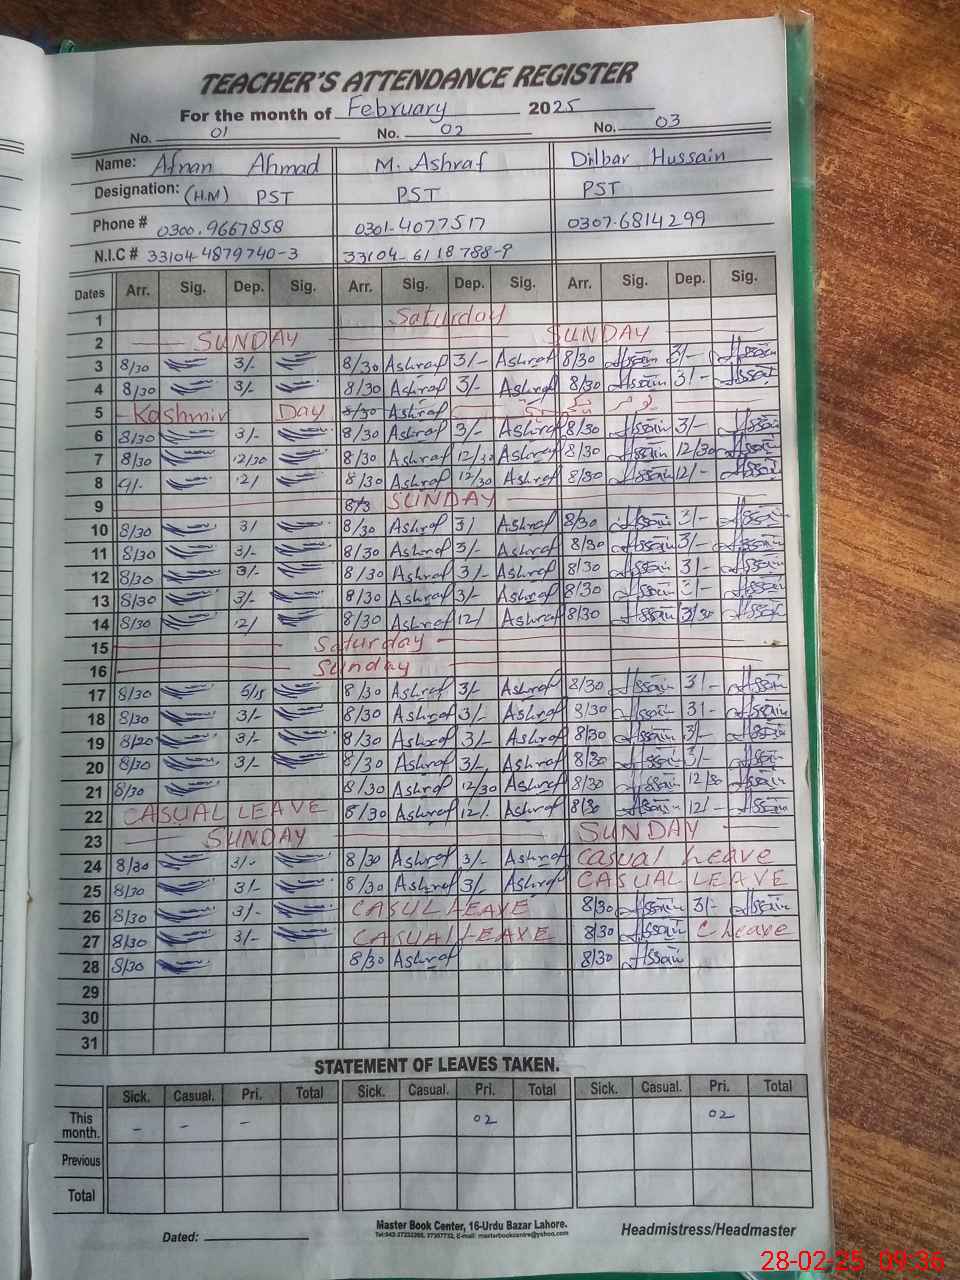 TEACHER'S ATTENDANCE REGISTER
For the month of February 2025
No. 01 No. 02 No. 03
Name: Afnan Ahmad M. Ashraf Dilbar Hussain
Designation: (H.M) PST PST PST
Phone # 0300.9667858 0301-4077517 0307-6814299
N.I.C # 33104-4879740-3 33104-6118788-9
Dates Arr. Sig. Dep. Sig. Arr. Sig. Dep. Sig. Arr. Sig. Dep. Sig.
1 Saturday
2 SUNDAY SUNDAY
3 8/30 3/- 8/30 Ashraf 3/- Ashraf 8/30 Hssain 3/- Hssain
4 8/30 3/- 8/30 Ashraf 3/- Ashraf 8/30 Hssain 3/- Hssain
5 Kashmir Day 8/30 Ashraf
6 8/30 3/- 8/30 Ashraf 3/- Ashraf 8/30 Hssain 3/- Hssain
7 8/30 12/30 8/30 Ashraf 12/30 Ashraf 8/30 Hssain 12/30 Hssain
8 9/- 12/ 8/30 Ashraf 12/30 Ashraf 8/30 Hssain 12/- Hssain
9 SUNDAY
10 8/30 3/ 8/30 Ashraf 3/ Ashraf 8/30 Hssain 3/- Hssain
11 8/30 3/- 8/30 Ashraf 3/- Ashraf 8/30 Hssain 3/- Hssain
12 8/30 3/- 8/30 Ashraf 3/- Ashraf 8/30 Hssain 3/- Hssain
13 8/30 3/- 8/30 Ashraf 3/- Ashraf 8/30 Hssain 3/- Hssain
14 8/30 12/ 8/30 Ashraf 12/ Ashraf 8/30 Hssain 3/30 Hssain
15 Saturday
16 Sunday
17 8/30 5/15 8/30 Ashraf 3/- Ashraf 8/30 Hssain 3/- Hssain
18 8/30 3/- 8/30 Ashraf 3/- Ashraf 8/30 Hssain 3/- Hssain
19 8/20 3/- 8/30 Ashraf 3/- Ashraf 8/30 Hssain 3/- Hssain
20 8/30 3/- 8/30 Ashraf 3/- Ashraf 8/30 Hssain 3/- Hssain
21 8/30 8/30 Ashraf 12/30 Ashraf 8/30 Hssain 12/30 Hssain
22 CASUAL LEAVE 8/30 Ashraf 12/- Ashraf 8/30 Hssain 12/- Hssain
23 SUNDAY SUNDAY
24 8/30 3/- 8/30 Ashraf 3/- Ashraf Casual Leave
25 8/30 3/- 8/30 Ashraf 3/- Ashraf CASUAL LEAVE
26 8/30 3/- CASUL LEAVE 8/30 Hssain 3/- Hssain
27 8/30 3/- CASUAL LEAVE 8/30 Hssain C Leave
28 8/30 8/30 Ashraf 8/30 Hssain
29
30
31
STATEMENT OF LEAVES TAKEN.
Sick. Casual. Pri. Total Sick. Casual. Pri. Total Sick. Casual. Pri. Total
This month. - - - 02 02
Previous
Total
Dated: Master Book Center, 16-Urdu Bazar Lahore. Headmistress/Headmaster
28-02-25 09:36